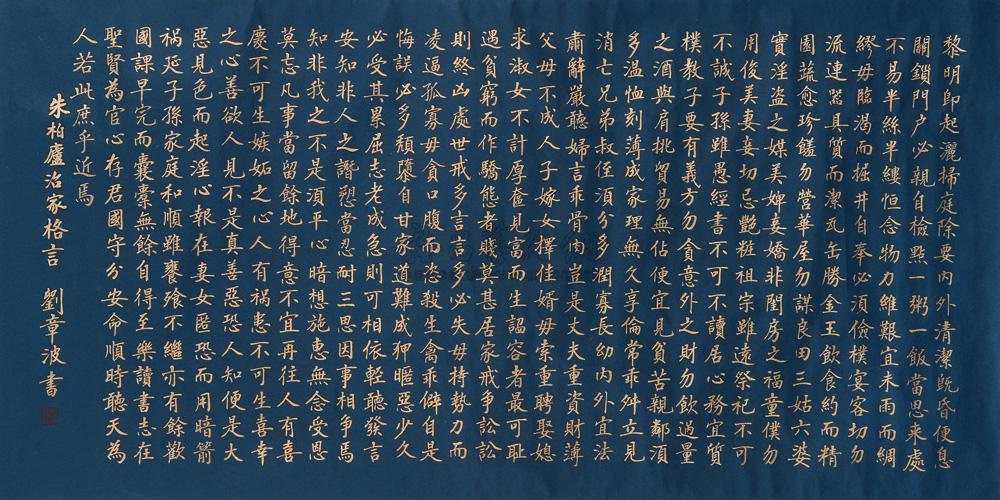 黎明即起灑掃庭除要內外清潔既昏便息
關鎖門户必親自檢點一粥一飯當思來處
不易半絲半縷恒念物力維艱宜未雨而綢
繆毋臨渴而掘井自奉必須儉樸宴客切勿
流連器具質而潔瓦缶勝金玉飲食約而精
園蔬愈珍饈勿營華屋勿謀良田三姑六婆
實淫盗之媒美婢妾嬌非閨房之福童僕勿
用俊美妻妾切忌艷粧祖宗雖遠祭祀不可
不誠子孫雖愚經書不可不讀居心務宜質
樸教子要有義方勿貪意外之財勿飲過量
之酒與肩挑貿易無佔便宜見貧苦親鄰須
多温恤刻薄成家理無久享倫常乖舛立見
消亡兄弟叔侄須分多潤寡長幼內外宜法
肅辭嚴聽婦言乖骨肉豈是丈夫重資財薄
父母不成人子嫁女擇佳婿毋索重聘娶媳
求淑女不計厚奩見富而生諂容者最可耻
遇貧窮而作驕態者賤莫甚居家戒爭訟訟
則終凶處世戒多言言多必失毋持勢力而
凌逼孤寡毋貪口腹而恣殺生禽乖僻自是
悔誤必多頹隳自甘家道難成狎暱惡少久
必受其累屈志老成急則可相依輕聽發言
安知非人之譖愬當忍耐三思因事相爭焉
知非我之不是須平心暗想施惠無念受恩
莫忘凡事當留餘地得意不宜再往人有喜
慶不可生嫉妬之心人有禍患不可生喜幸
之心善欲人見不是真善惡恐人知便是大
惡見色而起淫心報在妻女匿恐而用暗箭
禍延子孫家庭和順雖饔飧不繼亦有餘歡
國課早完而囊橐無餘自得至樂讀書志在
聖賢為官心存君國守分安命順時聽天為
人若此庶乎近焉
朱柏廬治家格言 劉章波書